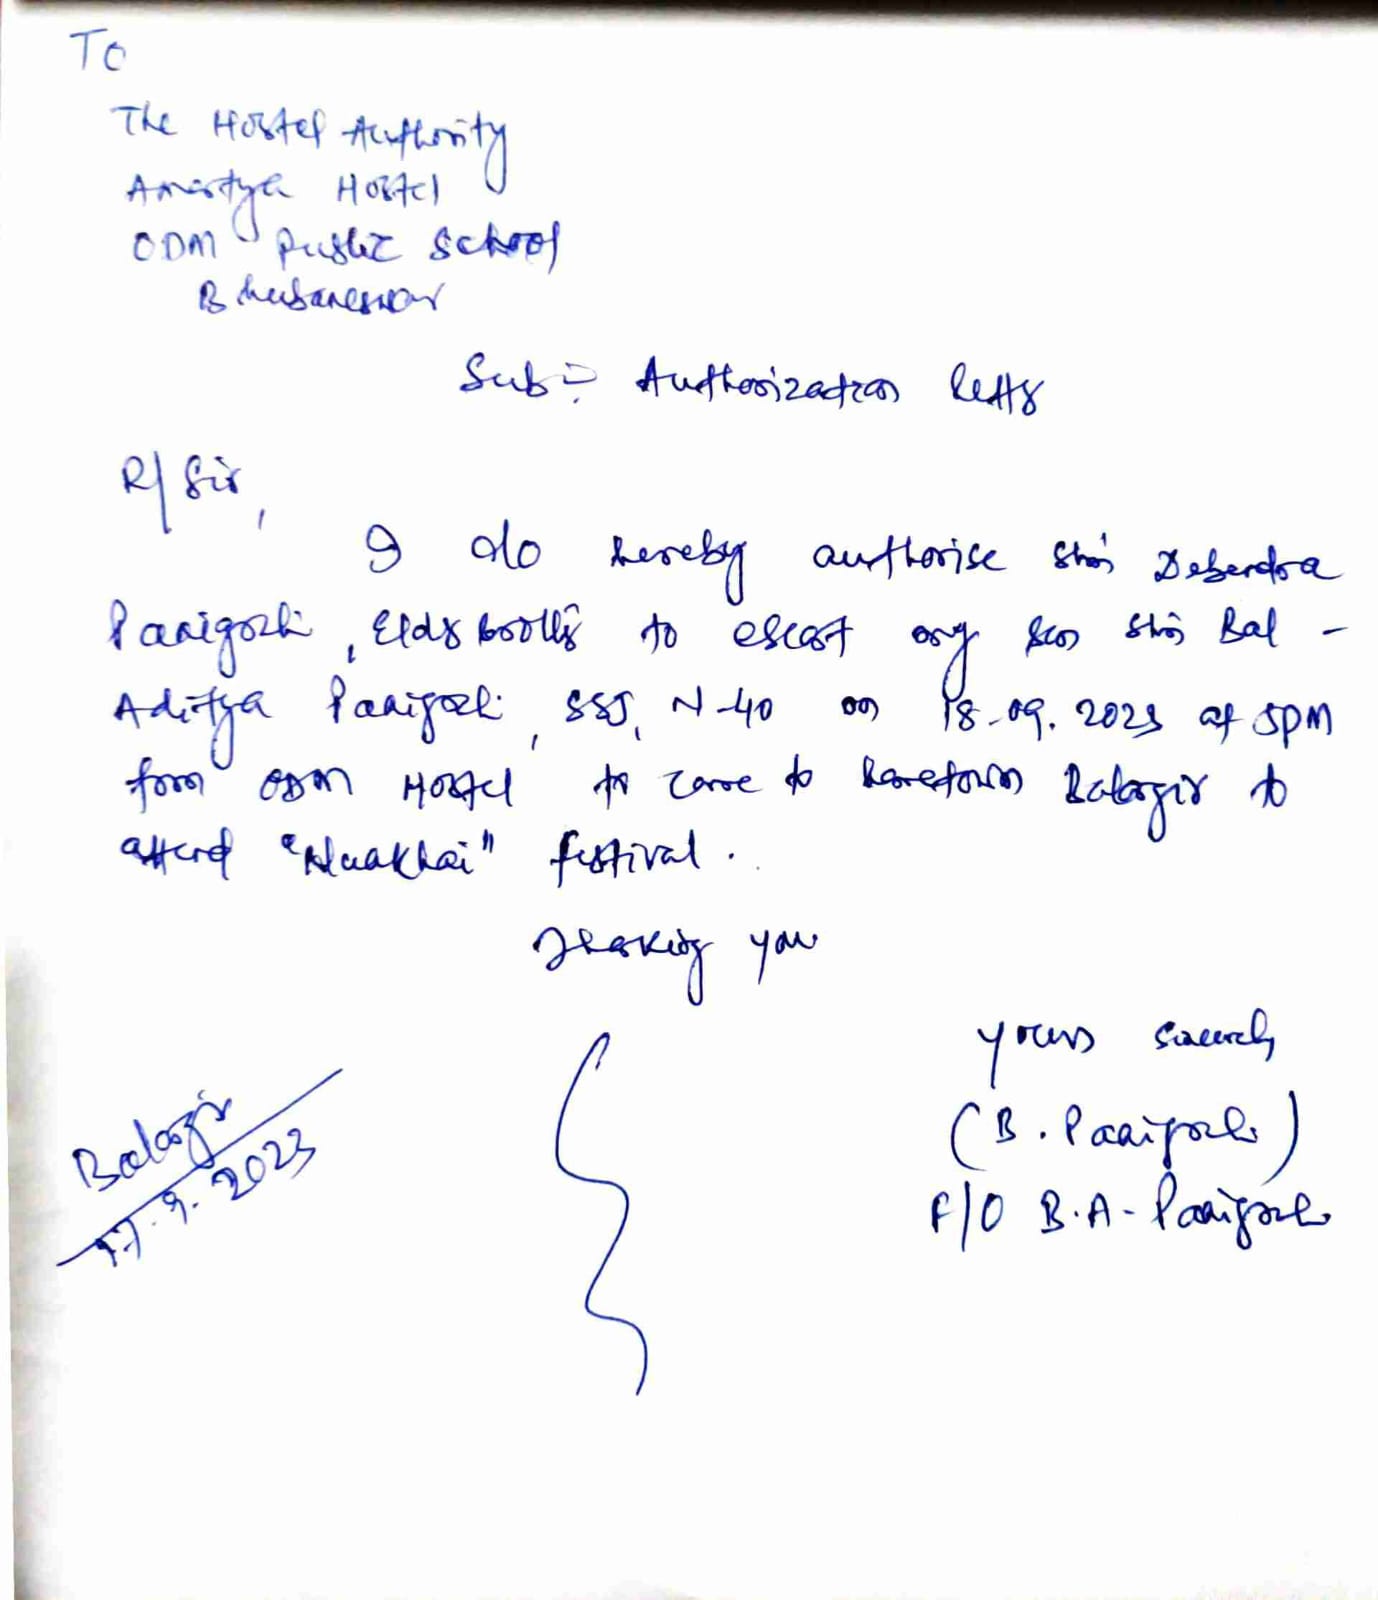 To
The Hostel Authority
Amartya Hostel
ODM Public School
Bhubaneswar
Sub:- Authorization letter
R/ Sir,
I do hereby authorise Shri Debendra
Panigrahi, Elder brother to escort my son Shri Bal -
Aditya Panigrahi, SSJ, N-40 on 18-09.2023 at 5PM
from ODM Hostel to come to hometown Balangir to
attend "Nuakhai" festival.
Thanking you
yours sincerely
(B. Panigrahi)
F/O B.A- Panigrahi
Balangir
17.9.2023